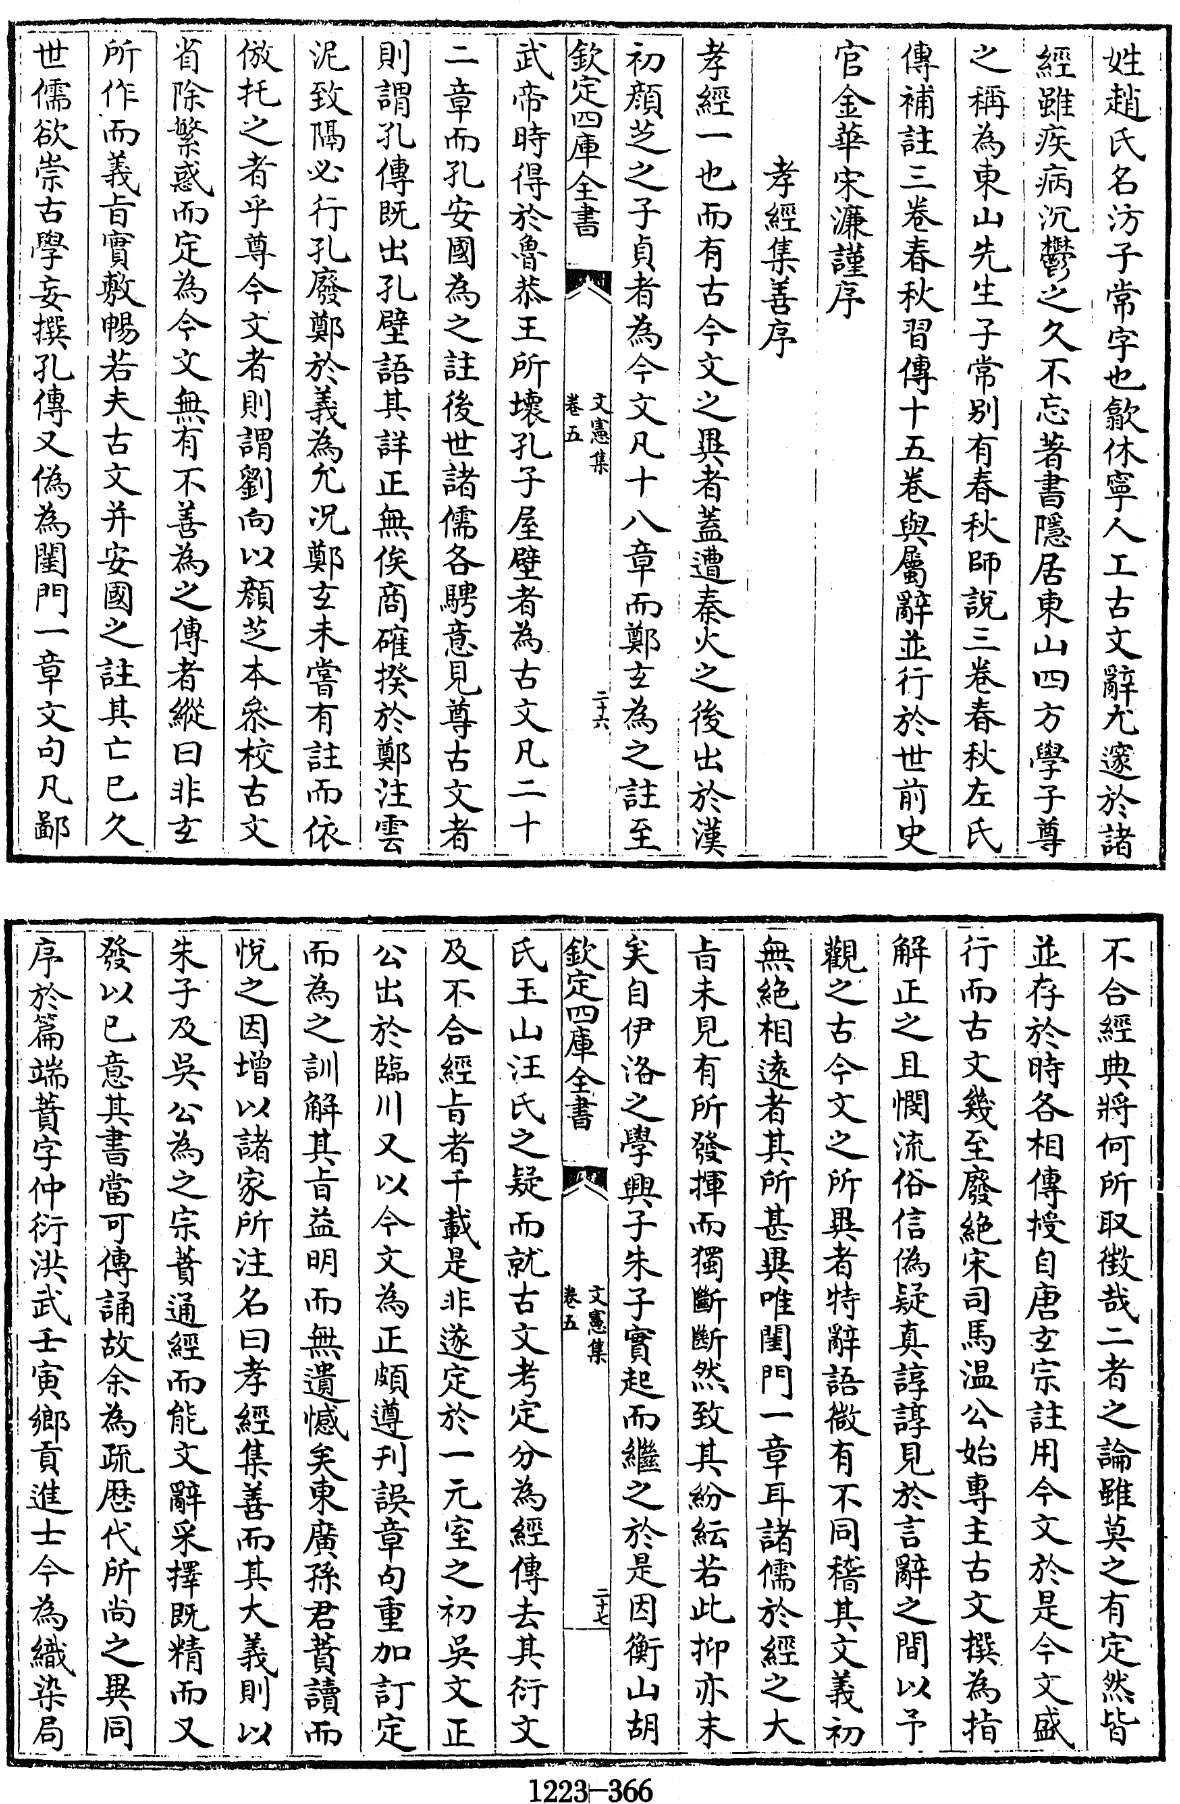 姓趙氏名汸子常字也歙休寧人工古文辭尤邃於諸
經雖疾病沉鬱之久不忘著書隱居東山四方學子尊
之稱為東山先生子常别有春秋師說三卷春秋左氏
傳補註三卷春秋習傳十五卷與屬辭並行於世前史
官金華宋濂謹序
孝經集善序
孝經一也而有古今文之異者蓋遭秦火之後出於漢
初顔芝之子貞者為今文凡十八章而鄭玄為之註至
欽定四庫全書
文憲集
卷五
二十六
武帝時得於魯恭王所壞孔子屋壁者為古文凡二十
二章而孔安國為之註後世諸儒各騁意見尊古文者
則謂孔傳既出孔壁語其詳正無俟商確揆於鄭注雲
泥致隔必行孔廢鄭於義為允况鄭玄未嘗有註而依
倣托之者乎尊今文者則謂劉向以顔芝本叅校古文
省除繁惑而定為今文無有不善為之傳者縱曰非玄
所作而義旨實敷暢若夫古文并安國之註其亡已久
世儒欲崇古學妄撰孔傳又偽為閨門一章文句凡鄙
不合經典將何所取徴哉二者之論雖莫之有定然皆
並存於時各相傳授自唐玄宗註用今文於是今文盛
行而古文幾至廢絶宋司馬温公始專主古文撰為指
解正之且憫流俗信偽疑真諄諄見於言辭之間以予
觀之古今文之所異者特辭語微有不同稽其文義初
無絶相逺者其所甚異唯閨門一章耳諸儒於經之大
旨未見有所發揮而獨斷斷然致其紛紜若此抑亦末
矣自伊洛之學興子朱子實起而繼之於是因衡山胡
欽定四庫全書
文憲集
卷五
二十七
氏玉山汪氏之疑而就古文考定分為經傳去其衍文
及不合經旨者千載是非遂定於一元室之初吳文正
公出於臨川又以今文為正頗遵刊誤章句重加訂定
而為之訓解其旨益明而無遺憾矣東廣孫君蕡讀而
悅之因增以諸家所注名曰孝經集善而其大義則以
朱子及吳公為之宗蕡通經而能文辭采擇既精而又
發以已意其書當可傳誦故余為疏歴代所尚之異同
序於篇端蕡字仲衍洪武壬寅鄉貢進士今為織染局
1223-366